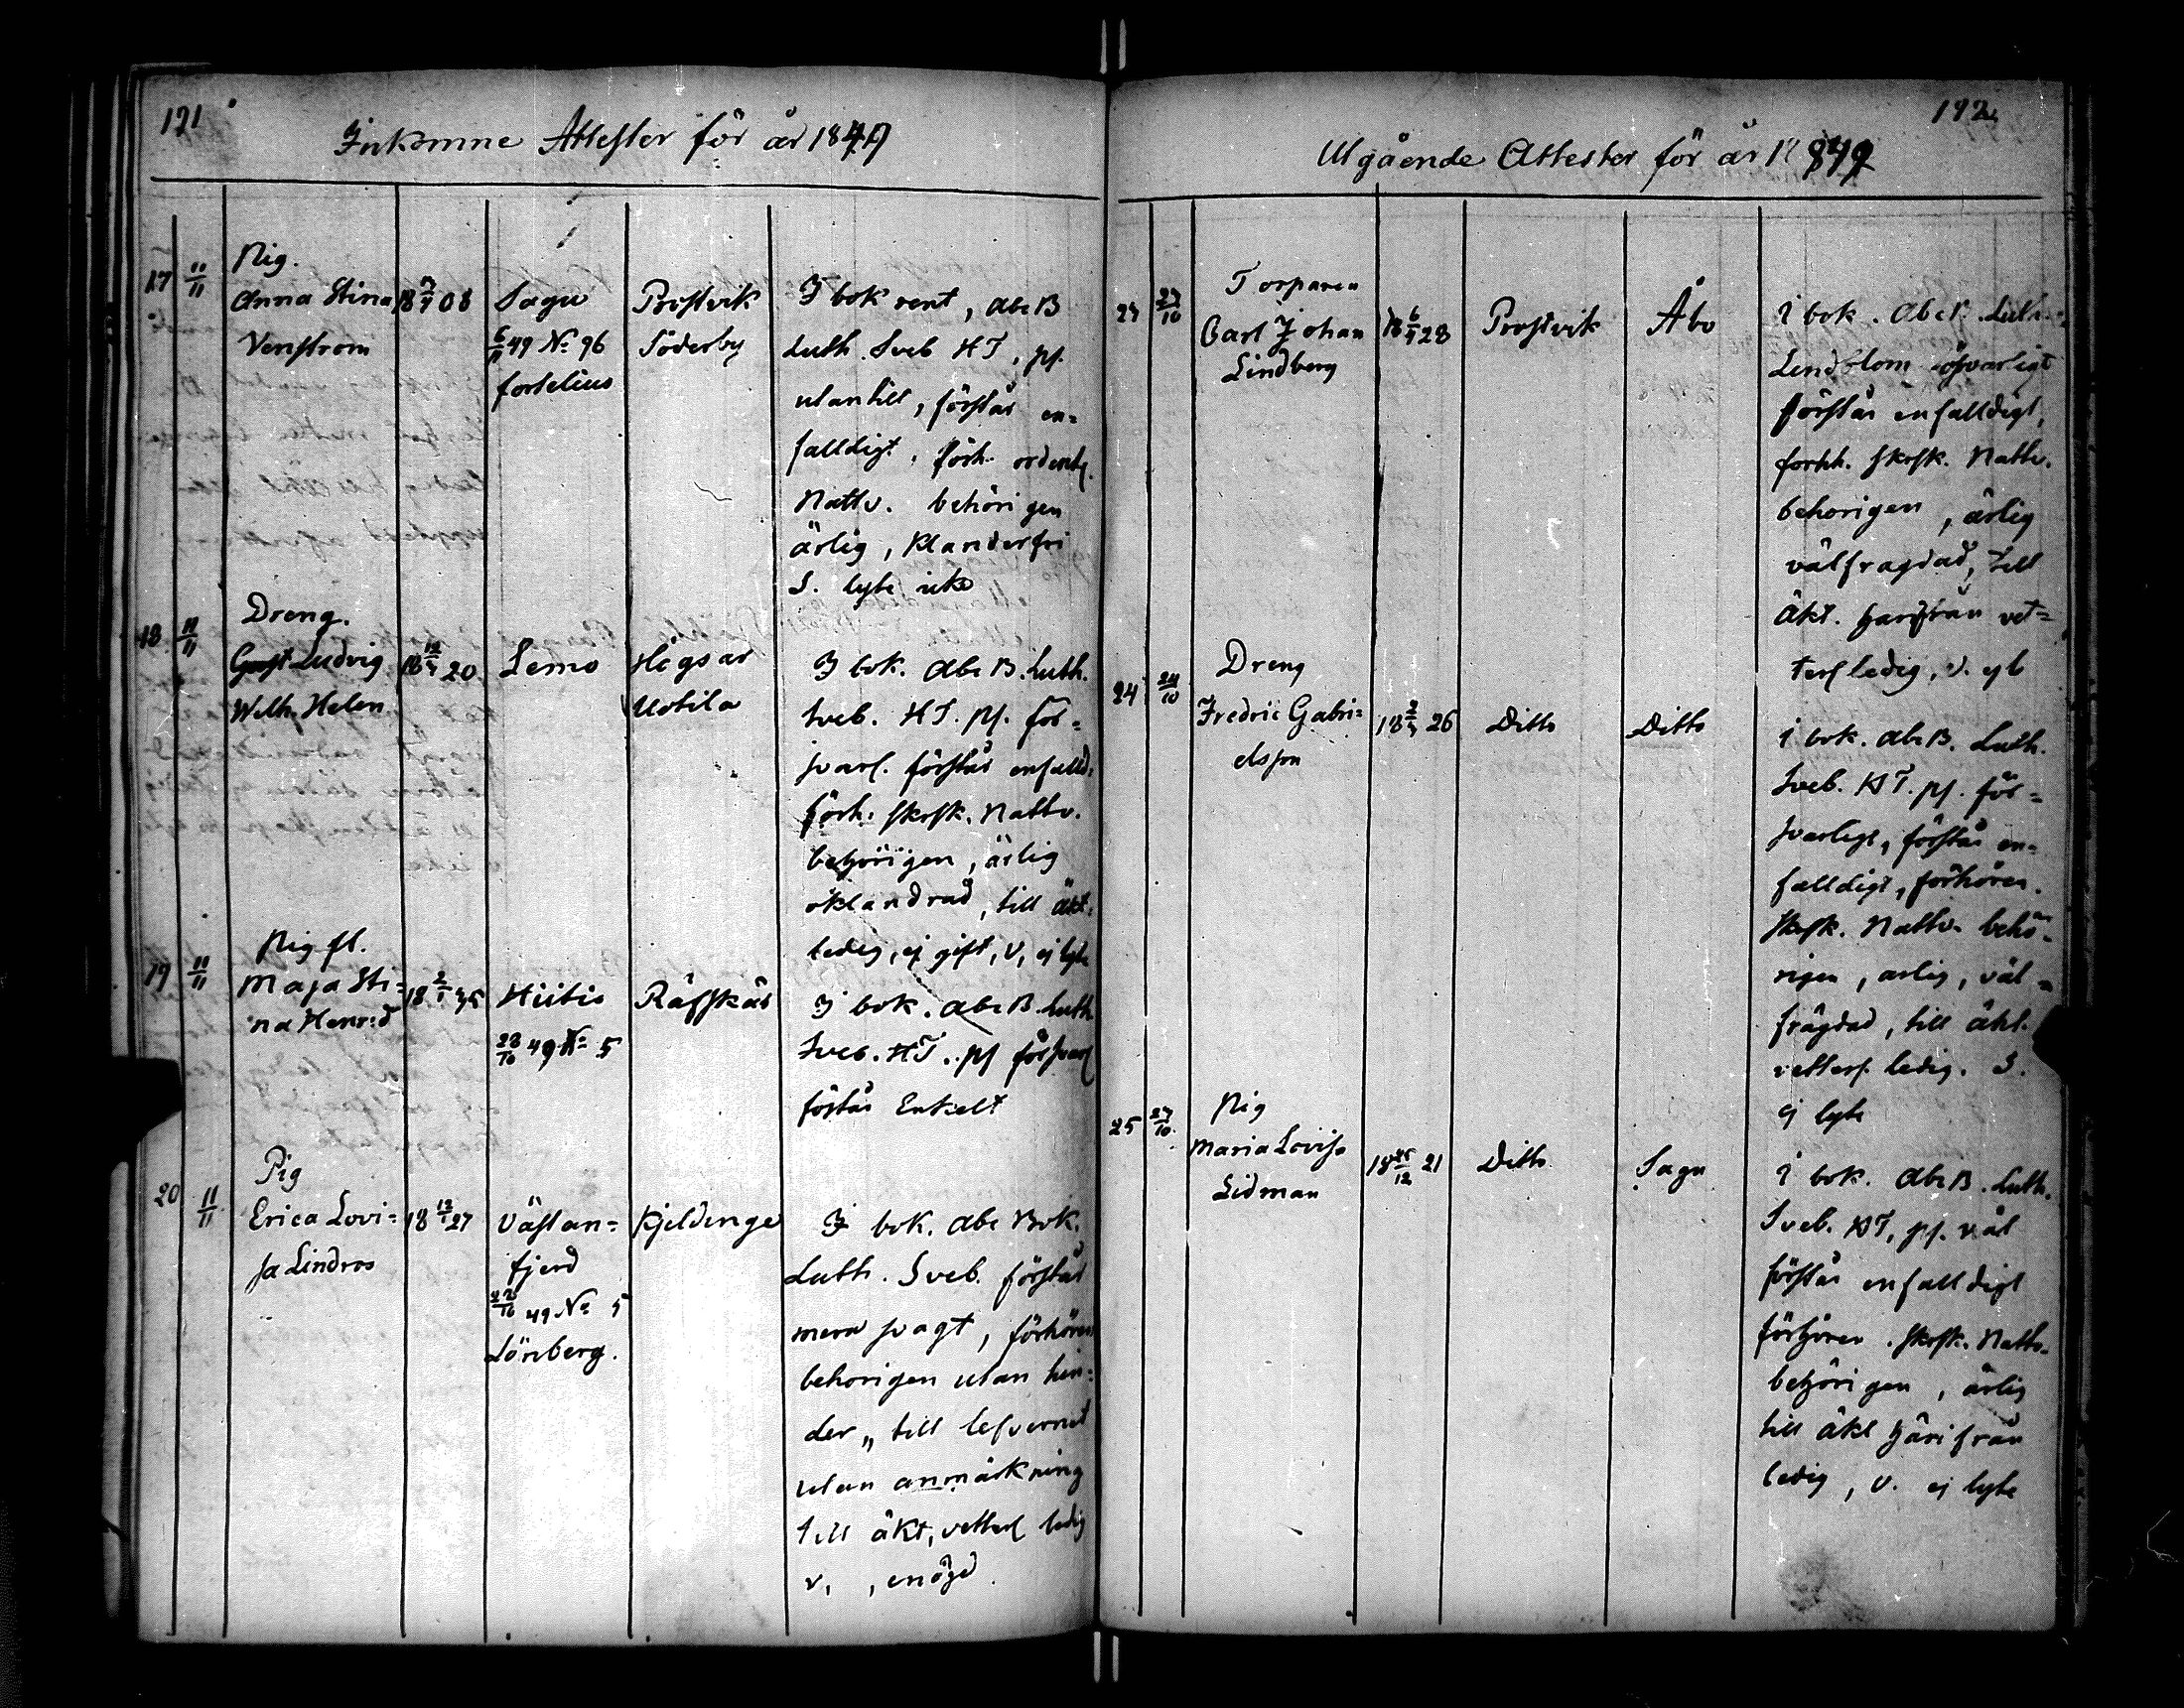 191
Inkomne Attester för år 1849
17 11/11
Pig.
Anna Stina
Venstrom
18 7/9 08
Sagu
6/11 49 No 96
forselius
Prostvik
Söderby
I bok rent, Abc B
Luth. Sveb HT, ps.
utantill, förstår en=
falldigt, förh. ordentl.
Nattv. behörigen
ärlig, klanderfri
S. lyte icke
18 11/11
Dreng.
Gust Ludvig
Wilh. Helen
20
Lemo
Högsar
Uotila
I bok. Abc B. Luth.
Sveb. HT. ps. för=
svarl. förstår enfalld.
förh. skrsk. Nattv.
behörigen, ärlig
oklandrad, till äkt.
ledig, ej gift, V, ej lyte
19 11/11
Pig fl.
Maja Sti=
na Henr:d
18 2/1 35
Hiitis
28/10 49 No 5
Räfskär
I bok. Abc B. Luth.
Sveb. HT. ps försvarl
förstår Enkelt
20 11/11
Pig
Erica Lovi=
sa Lindros
18 12/1 27
Västan=
fjerd
22/10 49 No 5
Lönberg.
Kjeldinge
I bok. Abc Bok.
Luth. Sveb. förstår
mera svagt, förhören
behorigen utan hin=
der „ till lefvernet
utan anmärkning
till äkt, vetterl ledig
v, , enögd.
192
Utgående Attester för år 1849
23 23/10
Torparen
Carl Johan
Lindberg
18 6/9 28
Prostvik
Åbo
i bok. Abc B. Luth.
Lendblom försvarligt
förstår enfalldigt,
forhh. skrsk. Nattv.
behorigen, ärlig
välfragdad, till
äkt. härifrån vet=
terl ledig, v. ej l
24 24/10
Dreng
Fredric Gabri=
elsson
18 2/3 26
Ditto
Ditto
i bok. Abc B. Luth.
Sveb. HT. ps. för=
svarligt, förstår en=
falldigt, förhören.
skrsk. Nattv. behö=
rigen, arlig, väl=
frägdad, till äkt.
vetterl. ledig. S.
ej lyte
25 27/10
Pig
Maria Lovisa
Lidman
18 25/12 21
Ditto
Sagu
i bok. Abc B. Luth.
Sveb. HT, ps. väl
förstår enfalldigt
förhören. skrsk. Nattv.
behörigen, ärlig
till äkt härifrån
ledig, v. ej lyte